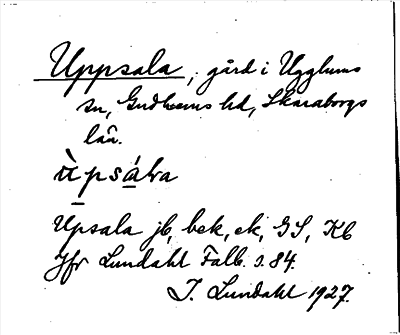 Uppsala, gård i Ugglums
sn, Gudhems hd, Skaraborgs
län.
ùpsála
Upsala jb, bek, ek, GS, Kb
Jfr Lundahl Falb. s. 84.
I. Lundahl 1927.